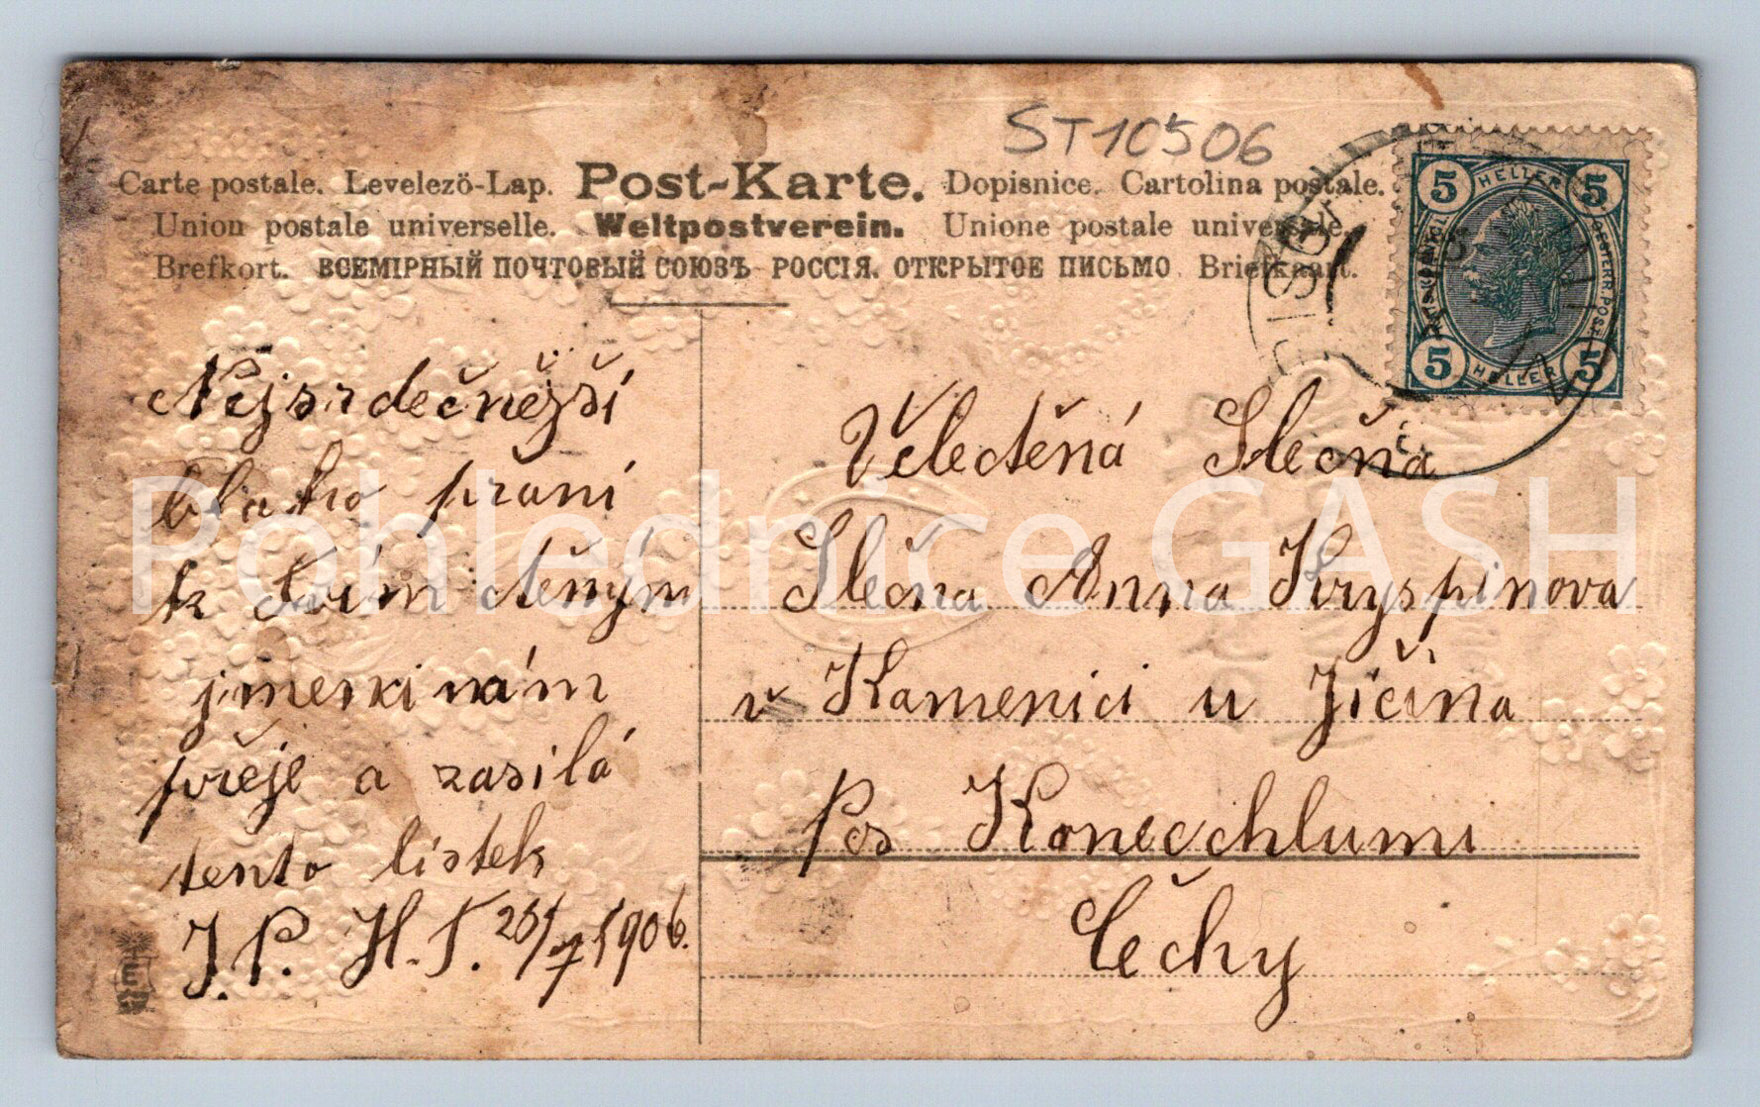 ST10506
Carte postale. Levelező-Lap. Post-Karte. Dopisnice. Cartolina postale.
Union postale universelle. Weltpostverein. Unione postale universale.
Brefkort. ВСЕМІРНЫЙ ПОЧТОВЫЙ СОЮЗЪ РОССІЯ. ОТКРЫТОЕ ПИСЬМО. Briefkaart.
5 HELLER 5
5 HELLER 5
Nejsrdečnější
blaho přaní
k tvím cteným
jmenninám
přeje a zasilá
tento listek
J. P. H. T. 26/7 1906.
Velectěná Slečna
Slečna Anna Kryspinova
v Kamenici u Jičína
Pos Konecchlumi
Čechy
Pohlednice GASH